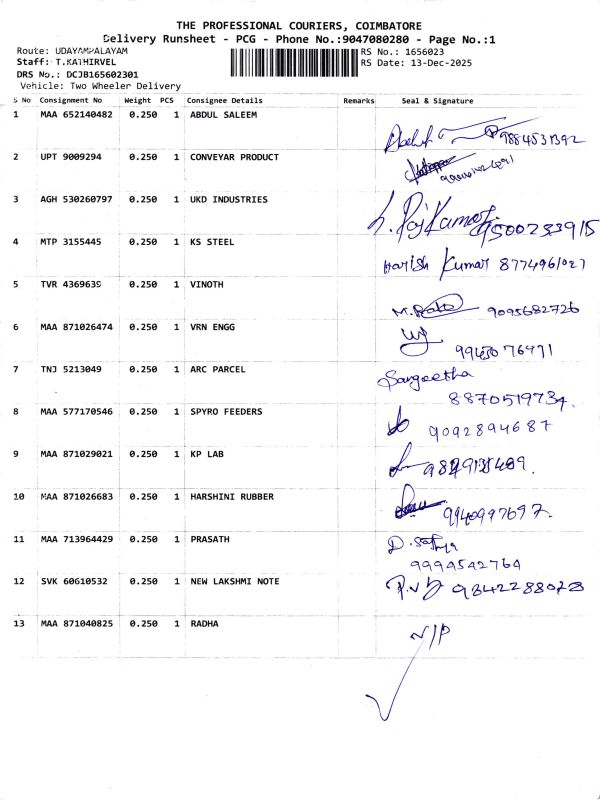 THE PROFESSIONAL COURIERS, COIMBATORE
Delivery Runsheet - PCG - Phone No.:9047080280 - Page No.:1
Route: UDAYAMPALAYAM
Staff: T.KATHIRVEL
DRS No.: DCJB165602301
Vehicle: Two Wheeler Delivery
RS No.: 1656023
RS Date: 13-Dec-2025
S No Consignment No Weight PCS Consignee Details Remarks Seal & Signature
1 MAA 652140482 0.250 1 ABDUL SALEEM
2 UPT 9009294 0.250 1 CONVEYAR PRODUCT
3 AGH 530260797 0.250 1 UKD INDUSTRIES L. Raj Kumar 9500233915
4 MTP 3155445 0.250 1 KS STEEL Harish Kumar
5 TVR 4369639 0.250 1 VINOTH 9095682726
6 MAA 871026474 0.250 1 VRN ENGG
7 TNJ 5213049 0.250 1 ARC PARCEL Sangeetha
8870519734.
8 MAA 577170546 0.250 1 SPYRO FEEDERS 9092894687
9 MAA 871029021 0.250 1 KP LAB
10 MAA 871026683 0.250 1 HARSHINI RUBBER 9940997697.
11 MAA 713964429 0.250 1 PRASATH D. Sathya
9994542764
12 SVK 60610532 0.250 1 NEW LAKSHMI NOTE
13 MAA 871040825 0.250 1 RADHA N/P